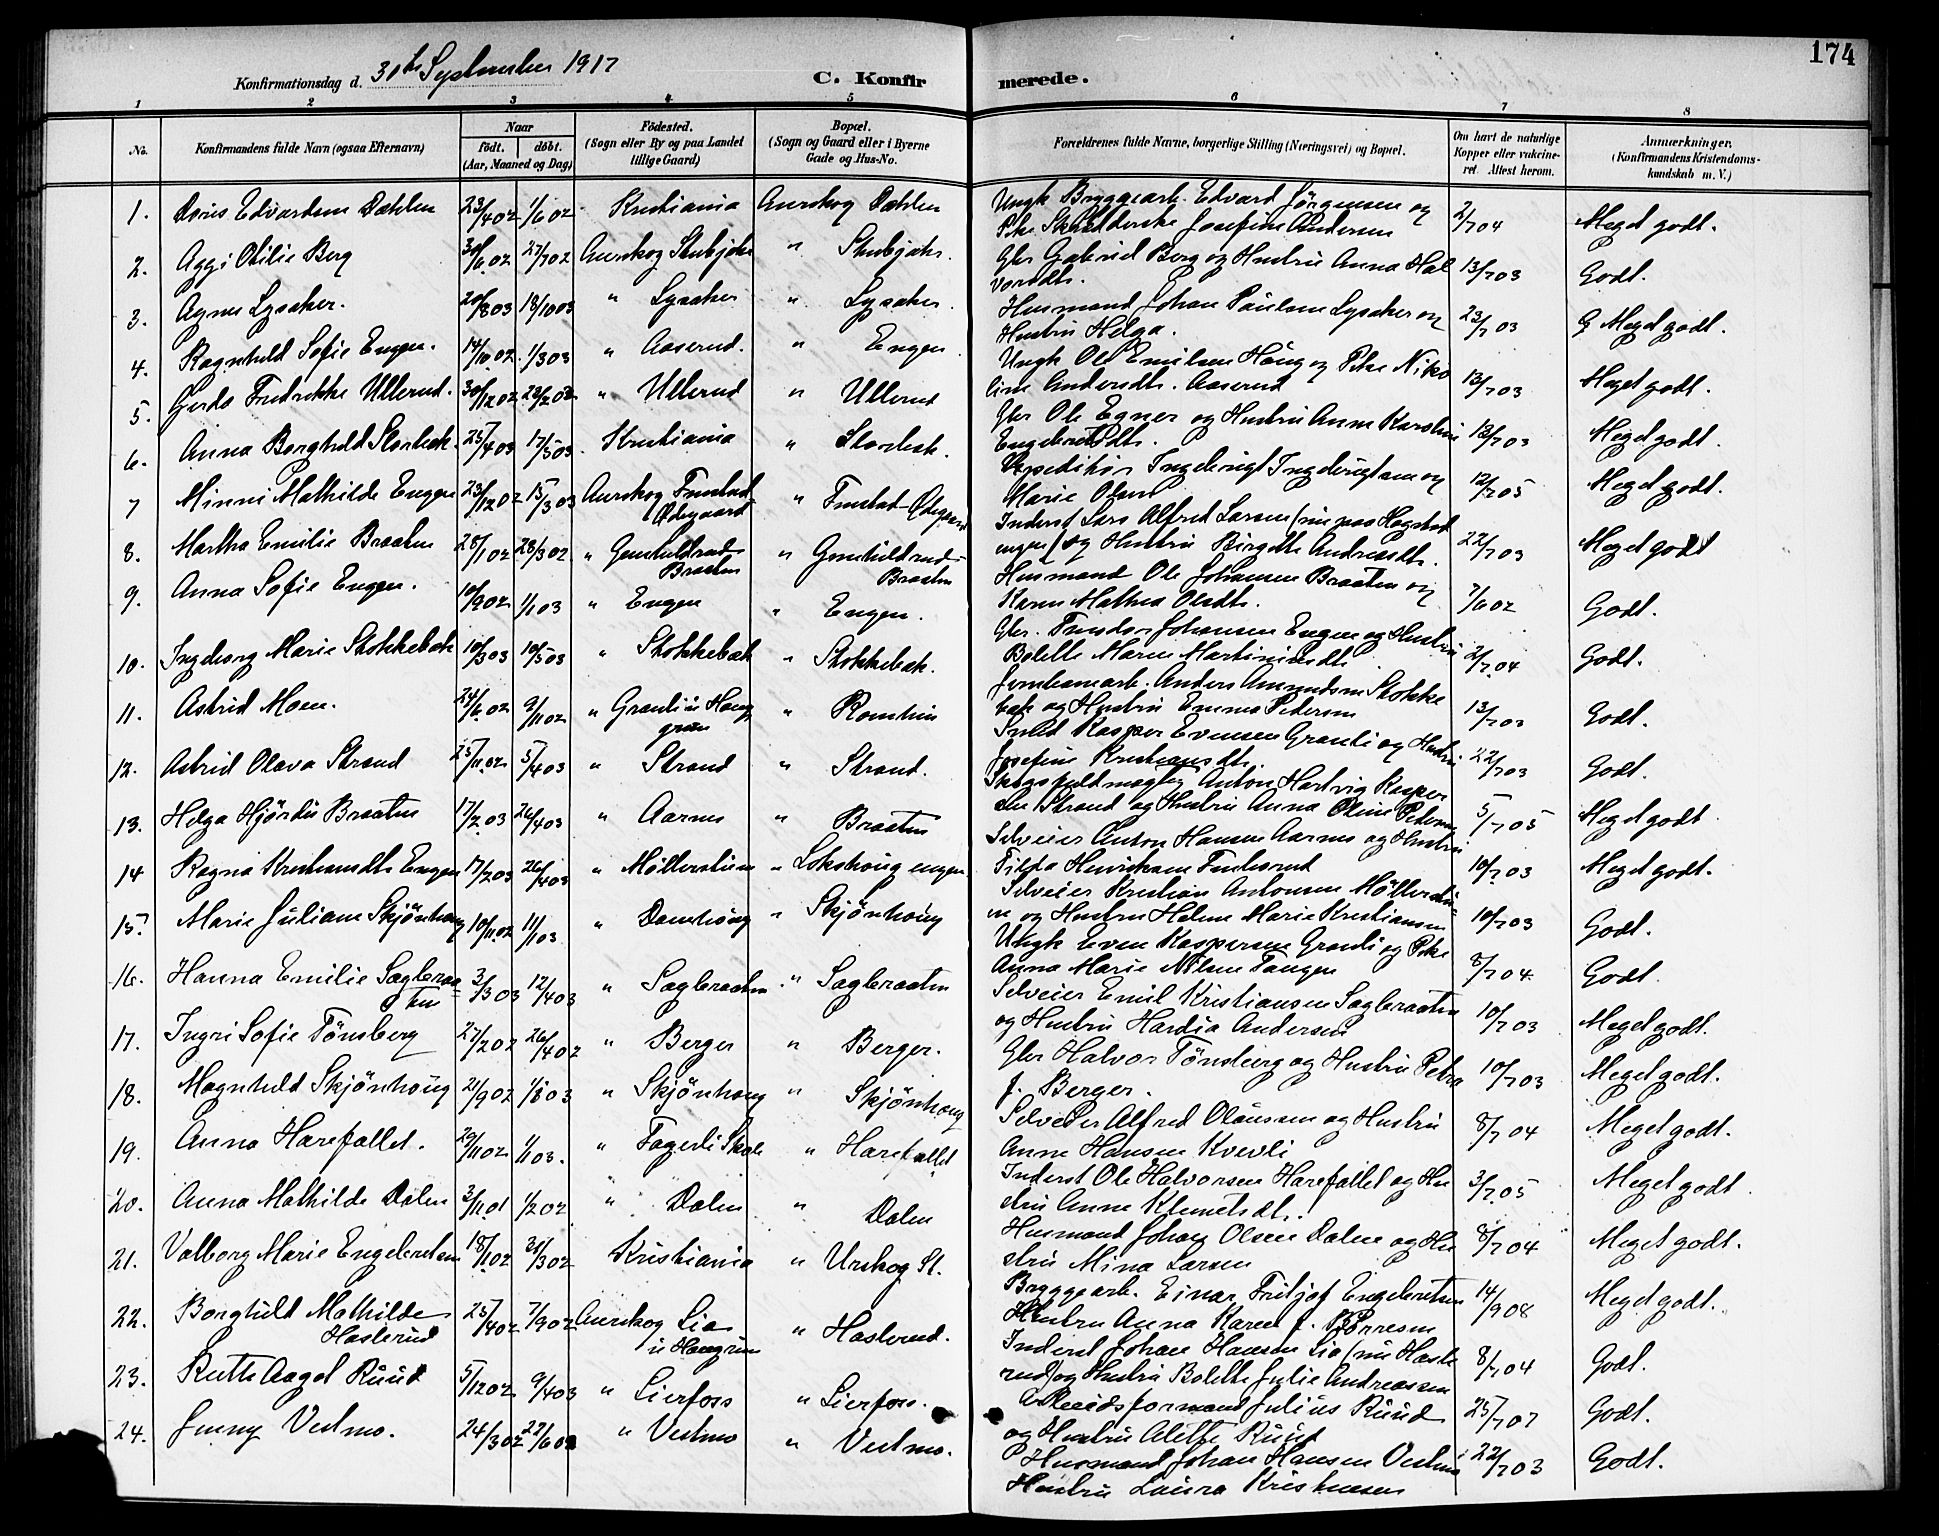 174
Konfirmationsdag d. 30te September 1917
C. Konfirmerede.
1 2 3 4 5 6 7 8
No. Konfirmandens fulde Navn (ogsaa Efternavn) Naar födt. döbt. (Aar, Maaned og Dag) Födested. (Sogn eller By og paa Landet tillige Gaard) Bopæl. (Sogn og Gaard eller i Byerne Gade og Hus-No. Forældrenes fulde Navne, borgerlige Stilling (Næringsvei) og Bopæl. Om havt de naturlige Kopper eller vakcineret. Attest herom. Anmærkninger. (Konfirmandens Kristendomskundskab m. V.)
1. Edvardsen Dahlen 23/4 02 1/6 02 Kristiania Aurskog Dahlen Ungk. Bryggearb. Edvard Jörgensen og Pike Josefine Andersen 2/7 04 Meget godt.
2. Aggi Otilie Berg 30/6 02 27/7 02 Aurskog " Gbr Gabriel Berg og Hustru Anna Halvorsdt. 13/7 03 Godt.
3. Agnes Lysaker. 20/8 03 18/10 03 " Lysaker " Lysaker Husmand Johan Paulsen Lysaker og Hustru Helga. 23/7 03 Meget godt.
4. Ragnhild Sofie Engen. 14/10 02 1/3 03 " Aaserud. " Engen Ungk Ole Emilsen Haug og Pike Nikoline Andersdt. Aaserud 13/7 03 Meget godt.
5. Gerda Fredrikke Ullerud. 30/12 02 " Ullerud " Ullerud Gbr Ole Egner og Hustru Anne Karoline Engebretsdt. 13/7 03 Meget godt.
6. Anna Borghild Storbæk. 25/4 03 17/5 03 Kristiania " Storbæk. Expeditör Ingebrigt Ingebrigtsen og Marie Olsen 12/7 05 Meget godt.
7 Minni Mathilde Engen 23/12 02 15/3 03 Aurskog Funstad Ödegaard " Funstad-Ödegaard Inderst Lars Alfred Larsen (nu paa Hogstadengen) og Hustru Birgitte Andreasdt. 22/7 03 Meget godt
8. Martha Emilie Braaten 28/1 02 28/3 02 " Gunhildrud Braaten " Gunhildrud-Braaten Husmand Ole Johansen Braaten og Karen Mathea Olsdt. 7/6 02 Godt.
9. Anna Sofie Engen. 10/9 02 1/1 03 " Engen " Engen. Gbr. Johansen Engen og Hustru Bolette Maren Martinusdt. 2/7 04 Godt.
10. Ingeborg Marie Stokkebæk 10/3 03 10/5 03 " Stokkebæk " Stokkebæk. Jernbanearb. Anders Amundsen Stokkebæk og Hustru Emma Pedersen 13/7 03 Godt.
11. Astrid Moen. 24/6 02 9/11 02 " Granli " Smed Kasper Evensen Granli og Hustru Josefine Kristiansdt. 22/7 03 Godt.
12. Astrid Olava Strand 25/11 02 5/4 03 " Strand " Strand. Skogsfuldmægtig Anton Hartvig Kaspersen Strand og Hustru Anna Oline Pedersen 5/7 05 Meget godt
13. Helga Hjørdis Braaten 17/2 03 26/4 03 " Aarnes " Braaten Selveier Anton Hansen Aarnes og Hustru Tilda Henriksen 10/7 03 Meget godt.
14 Ragna Kristiansdt. Engen 17/2 03 26/4 03 " Möllerstuen " Lokshaug engen Selveier Kristian Antonsen Möllerstuen og Hustru Helene Marie Kristiansen 10/7 03 Godt.
15. Marie Juliane Skjönhaug 10/11 02 11/1 03 " Damhaug " Skjönhaug Ungk Even Kaspersen Granli og Pike Anna Marie Nilsen Tangen 8/7 04 Godt.
16. Hanna Emilie Sagbraaten 3/3 03 12/4 03 " Sagbraaten " Sagbraaten Selveier Emil Kristiansen Sagbraaten og Hustru Hardia Andersen 10/7 03 Meget godt.
17. Ingri Sofie Tönsberg 27/2 02 26/4 02 " Berger " Berger. Gbr Halvor Tönsberg og Hustru Petra f. Berger. 10/7 03 Meget godt.
18. Magnhild Skjönhaug 21/9 02 03 " Skjönhaug " Skjönhaug Selveier Alfred Olaussen og Hustru Anne Hansen Kvevli 8/7 04 Meget godt.
19. Anna Harefallet. 29/11 02 1/1 03. " Fagerli Skole " Harefallet Inderst Ole Halvorsen Harefallet og Hustru Anne Klemetsdt. 3/7 05 Meget godt.
20. Anna Mathilde Dalen 3/11 01 1/2 02 " Dalen " Dalen Husmand Johan Olsen Dalen og Hustru Mina Larsen 8/7 04 Meget godt.
21. Valborg Marie Engebretsen 18/1 02 31/3 02 Kristiania " Urskog St. Bryggearb. Einar Fritjof Engebretsen Hustru Anna Karen f. Börresen 14/9 08 Meget godt.
22. Borghild Mathilde Haslerud 25/4 02 7/9 02 Aurskog Lia " Haslerud. Inderst Johan Hansen Lia (nu Haslerud) og Hustru Bolette Julie Andreassen 8/7 04 Godt.
23. Ruth Aagot Ruud 5/12 02 9/4 03 " Lierfoss " Lierfoss. Arbeidsformand Julius Ruud og Hustru Alette Ruud 25/7 07 Godt.
24. Jenny Vestmo. 24/3 02 22/6 02 " Vestmo " Vestmo. Husmand Johan Hansen Vestmo Hustru Laura Kristensen 22/7 03 Godt.